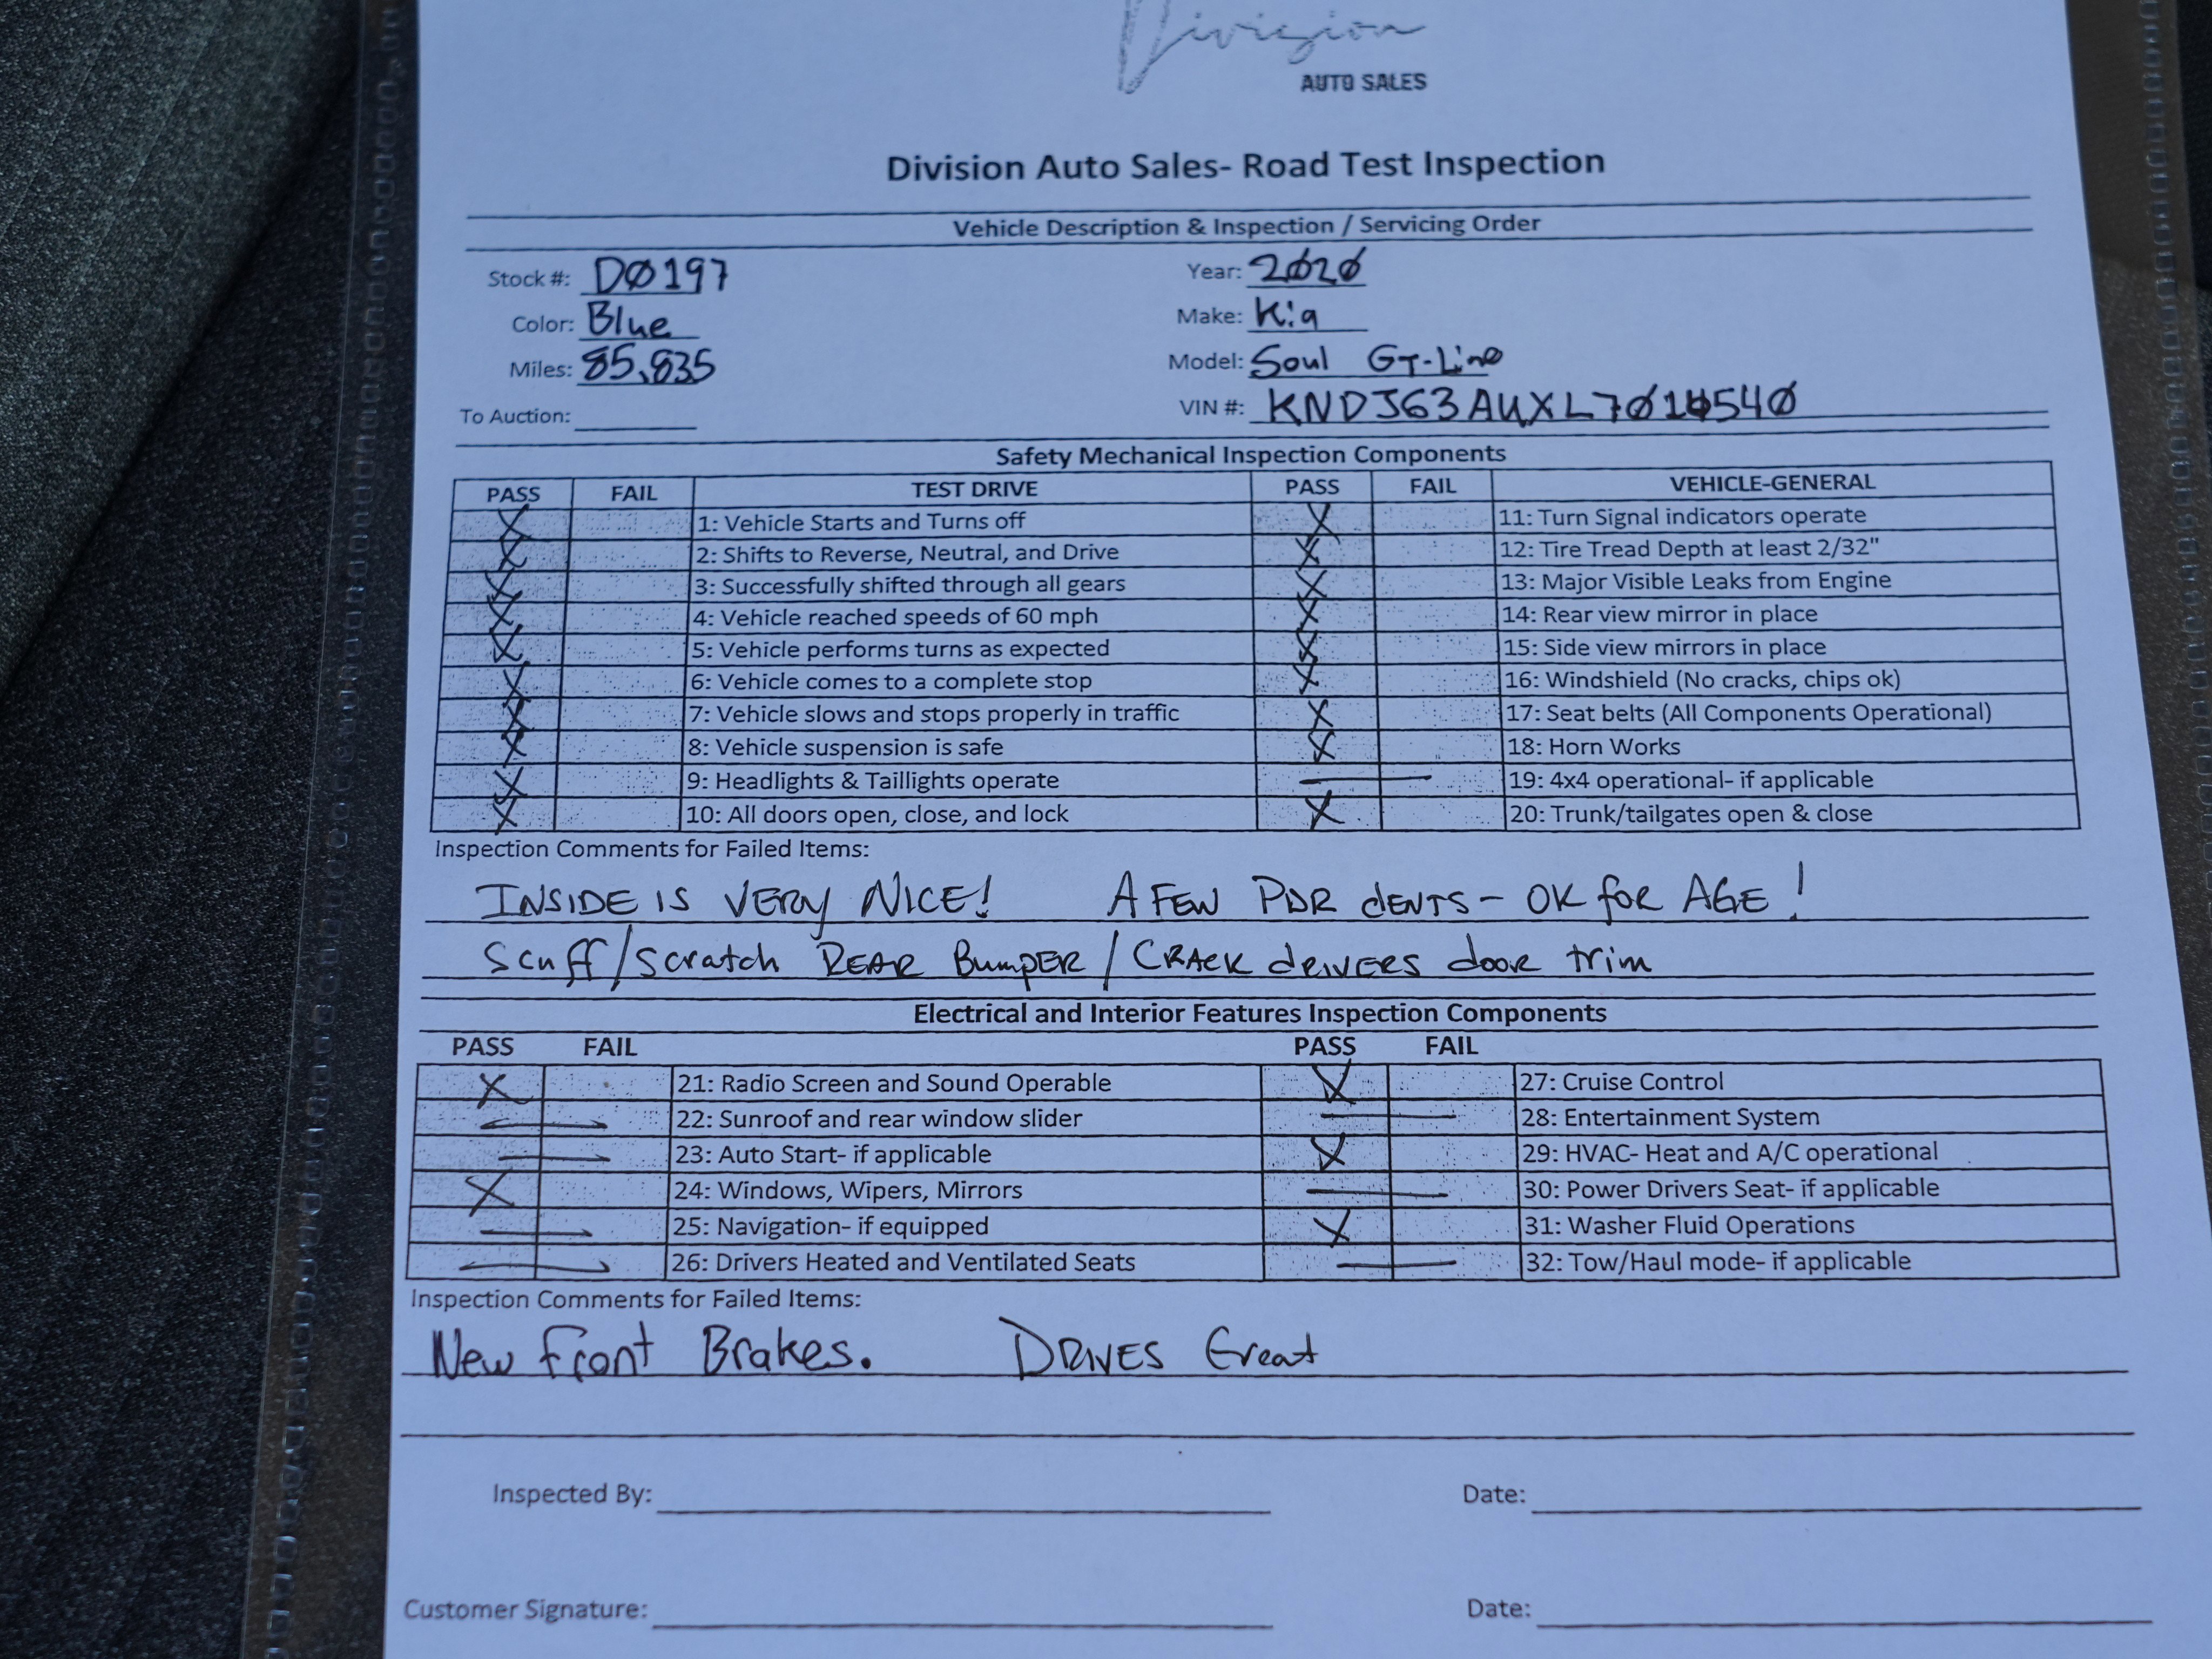 Division
AUTO SALES
Division Auto Sales- Road Test Inspection
Vehicle Description & Inspection / Servicing Order
Stock #: DØ197 Year: 2Ø2Ø
Color: Blue Make: Kia
Miles: 85,835 Model: Soul GT-Line
To Auction: VIN #:
Safety Mechanical Inspection Components
PASS FAIL TEST DRIVE PASS FAIL VEHICLE-GENERAL
X 1: Vehicle Starts and Turns off X 11: Turn Signal indicators operate
X 2: Shifts to Reverse, Neutral, and Drive X 12: Tire Tread Depth at least 2/32"
X 3: Successfully shifted through all gears X 13: Major Visible Leaks from Engine
X 4: Vehicle reached speeds of 60 mph X 14: Rear view mirror in place
X 5: Vehicle performs turns as expected X 15: Side view mirrors in place
X 6: Vehicle comes to a complete stop X 16: Windshield (No cracks, chips ok)
X 7: Vehicle slows and stops properly in traffic X 17: Seat belts (All Components Operational)
X 8: Vehicle suspension is safe X 18: Horn Works
X 9: Headlights & Taillights operate — 19: 4x4 operational- if applicable
X 10: All doors open, close, and lock X 20: Trunk/tailgates open & close
Inspection Comments for Failed Items:
INSIDE IS VERY NICE! A FEW PDR dENTS - OK foR AGE!
Scuff/Scratch REAR BumpER / CRAcK dRIVERS dooR trim
Electrical and Interior Features Inspection Components
PASS FAIL PASS FAIL
X 21: Radio Screen and Sound Operable X 27: Cruise Control
— 22: Sunroof and rear window slider — 28: Entertainment System
— 23: Auto Start- if applicable X 29: HVAC- Heat and A/C operational
X 24: Windows, Wipers, Mirrors — 30: Power Drivers Seat- if applicable
— 25: Navigation- if equipped X 31: Washer Fluid Operations
— 26: Drivers Heated and Ventilated Seats — 32: Tow/Haul mode- if applicable
Inspection Comments for Failed Items:
New Front Brakes. DRIVES Great
Inspected By: Date:
Customer Signature: Date: